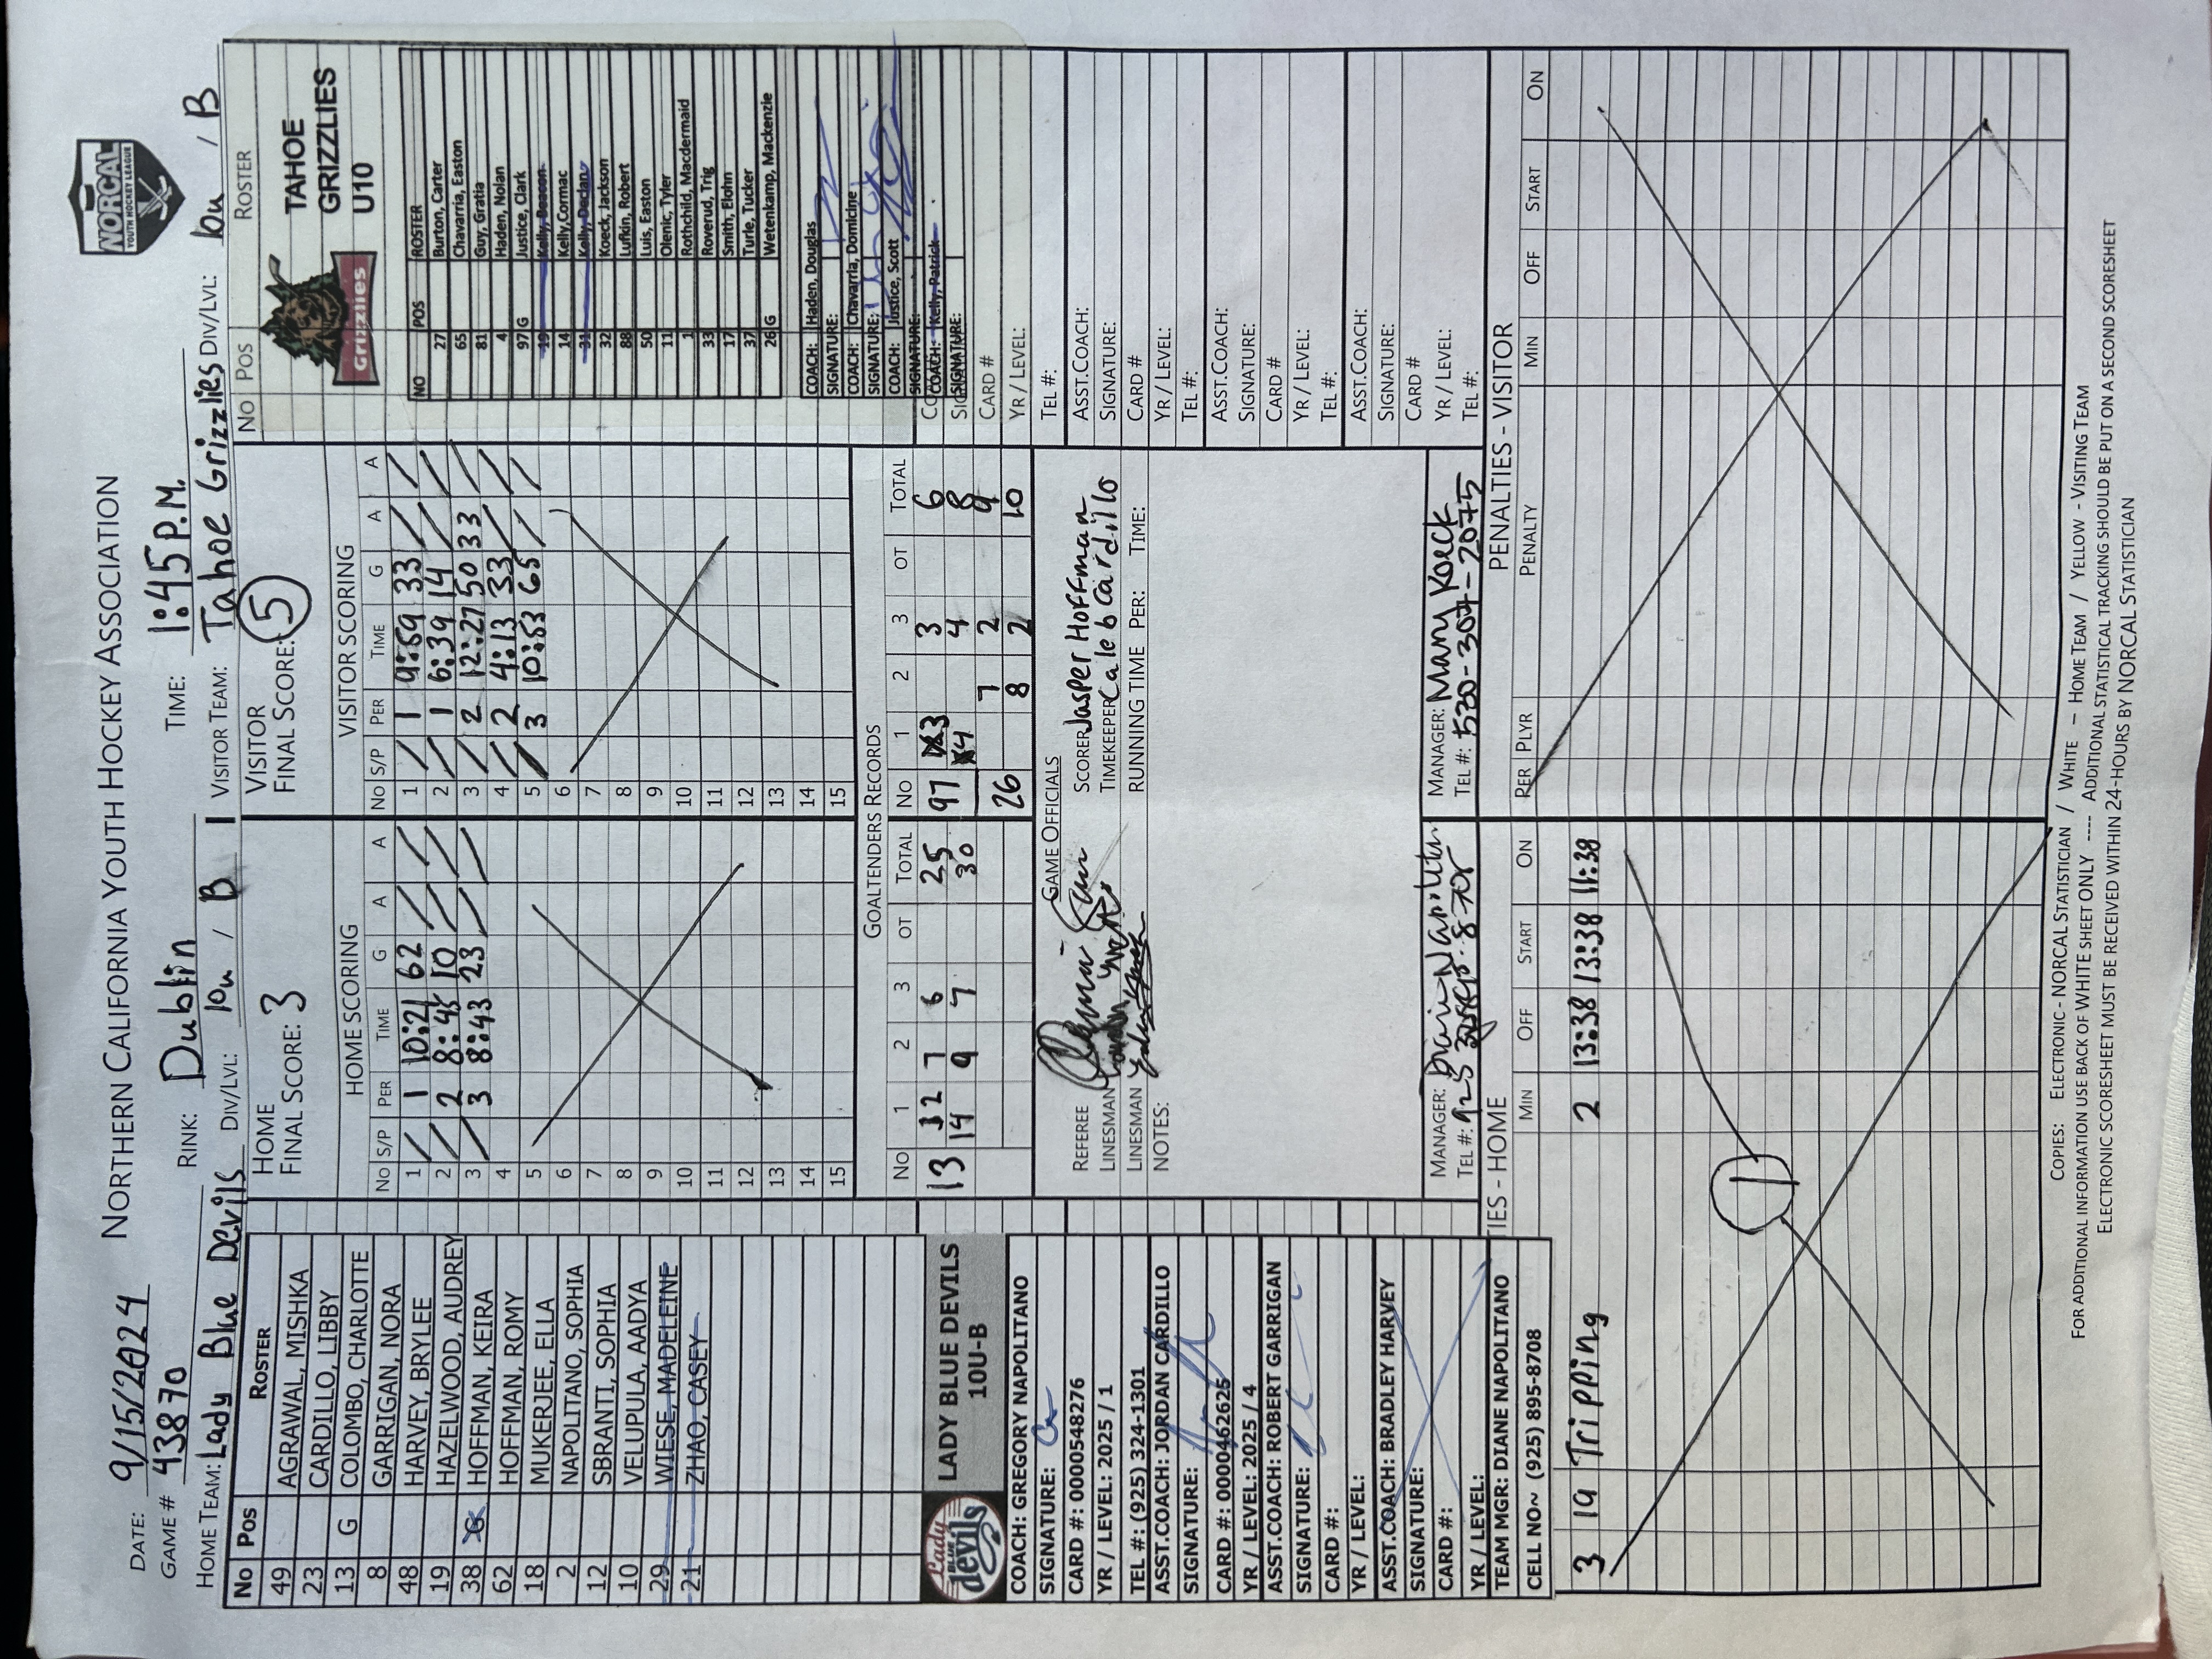 NORTHERN CALIFORNIA YOUTH HOCKEY ASSOCIATION
NORCAL
YOUTH HOCKEY LEAGUE
DATE: 9/15/2024
GAME # 43870
RINK: Dublin
TIME: 1:45 P.M.
HOME TEAM: Lady Blue Devils DIV/LVL: 10u / B 1
VISITOR TEAM: Tahoe Grizzlies DIV/LVL: 10u / B
No Pos ROSTER
49 AGRAWAL, MISHKA
23 CARDILLO, LIBBY
13 G COLOMBO, CHARLOTTE
8 GARRIGAN, NORA
48 HARVEY, BRYLEE
19 HAZELWOOD, AUDREY
38 G HOFFMAN, KEIRA
62 HOFFMAN, ROMY
18 MUKERJEE, ELLA
2 NAPOLITANO, SOPHIA
12 SBRANTI, SOPHIA
10 VELUPULA, AADYA
29 WIESE, MADELEINE
21 ZHAO, CASEY
Lady
BLUE
devils
LADY BLUE DEVILS
10U-B
COACH: GREGORY NAPOLITANO
SIGNATURE:
CARD #: 0000548276
YR / LEVEL: 2025 / 1
TEL #: (925) 324-1301
ASST.COACH: JORDAN CARDILLO
SIGNATURE:
CARD #: 000046262
YR / LEVEL: 2025 / 4
ASST.COACH: ROBERT GARRIGAN
SIGNATURE:
CARD #:
YR / LEVEL:
ASST.COACH: BRADLEY HARVEY
SIGNATURE:
CARD #:
YR / LEVEL:
TEAM MGR: DIANE NAPOLITANO
CELL NO~ (925) 895-8708
HOME
FINAL SCORE: 3
HOME SCORING
No S/P PER TIME G A A
1 / 1 10:21 62 / /
2 / 2 8:48 10 / /
3 / 3 8:43 23 / /
4
5
6
7
8
9
10
11
12
13
14
15
VISITOR
FINAL SCORE: 5
VISITOR SCORING
No S/P PER TIME G A A
1 / 1 9:59 33 / /
2 / 1 6:39 14 / /
3 / 2 12:27 50 33 /
4 / 2 4:13 33 / /
5 / 3 10:53 65 / /
6
7
8
9
10
11
12
13
14
15
GOALTENDERS RECORDS
No 1 2 3 OT TOTAL No 1 2 3 OT TOTAL
13 12 7 6 25 97 3 3 6
14 9 7 30 4 4 8
26 7 2 9
8 2 10
GAME OFFICIALS
REFEREE
LINESMAN
LINESMAN
NOTES:
SCORER Jasper Hoffman
TIMEKEEPER Caleb Cardillo
RUNNING TIME PER: TIME:
MANAGER:
TEL #: 925
MANAGER: Mary Koeck
TEL #: 530-307-2075
No Pos ROSTER
Grizzlies
TAHOE
GRIZZLIES
U10
NO POS ROSTER
27 Burton, Carter
65 Chavarria, Easton
81 Guy, Gratia
4 Haden, Nolan
97 G Justice, Clark
19 Kelly, Deacon
14 Kelly, Cormac
31 Kelly, Declan
32 Koeck, Jackson
88 Lufkin, Robert
50 Luis, Easton
11 Olenic, Tyler
1 Rothchild, Macdermaid
33 Roverud, Trig
17 Smith, Elohn
37 Turle, Tucker
26 G Wetenkamp, Mackenzie
COACH: Haden, Douglas
SIGNATURE:
COACH: Chavarria, Domicine
SIGNATURE:
COACH: Justice, Scott
SIGNATURE:
COACH: Kelly, Patrick
SIGNATURE:
CARD #
YR / LEVEL:
TEL #:
ASST.COACH:
SIGNATURE:
CARD #
YR / LEVEL:
TEL #:
ASST.COACH:
SIGNATURE:
CARD #
YR / LEVEL:
TEL #:
ASST.COACH:
SIGNATURE:
CARD #
YR / LEVEL:
TEL #:
TIES - HOME
MIN OFF START ON
3 19 Tripping 2 13:38 13:38 11:38
1
PENALTIES - VISITOR
PER PLYR PENALTY MIN OFF START ON
COPIES: ELECTRONIC - NORCAL STATISTICIAN / WHITE – HOME TEAM / YELLOW - VISITING TEAM
FOR ADDITIONAL INFORMATION USE BACK OF WHITE SHEET ONLY ---- ADDITIONAL STATISTICAL TRACKING SHOULD BE PUT ON A SECOND SCORESHEET
ELECTRONIC SCORESHEET MUST BE RECEIVED WITHIN 24-HOURS BY NORCAL STATISTICIAN